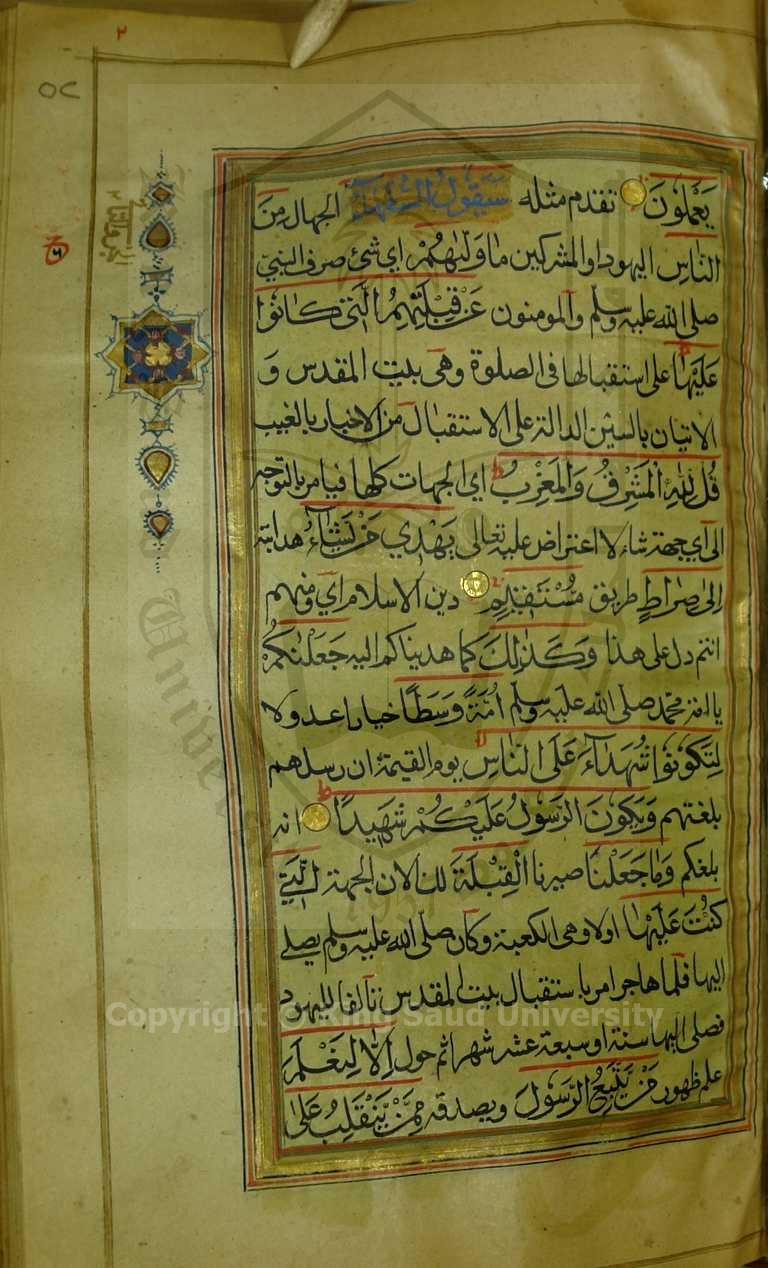 ٢
٥٢
الجزو الثاني
ع
٦
يَعْمَلُونَ تقدم مثله سَيَقُولُ السُّفَهَاءُ الجهال مِنَ
النَّاسِ اليهود او المشركين مَا وَلّٰىهُمْ اى شئ صرف النبي
صلى الله عليه وسلم والمومنون عَنْ قِبْلَتِهِمُ الَّتِي كَانُوا
عَلَيْهَا على استقبالها فى الصلوة وهى بيت المقدس و
الاتيان بالسين الدالة على الاستقبال من الاخبار بالغيب
قُلْ لِلّٰهِ الْمَشْرِقُ وَالْمَغْرِبُ اي الجهات كلها فيامر بالتوجه
الى اي جهة شاء لا اعتراض عليه تعالى يَهْدِي مَنْ يَشَاءُ هدايته
اِلىٰ صِرَاطٍ طريق مُسْتَقِيْمٍ دين الاسلام اي ومنهم
انتم دل على هذا وَكَذٰلِكَ كما هديناكم اليه جَعَلْنٰكُمْ
يا امة محمد صلى الله عليه وسلم اُمَّةً وَسَطًا خيارا عدولا
لِتَكُونُوا شُهَدَاءَ عَلَى النَّاسِ يوم القيمة ان رسلهم
بلغتهم وَيَكُونَ الرَّسُولُ عَلَيْكُمْ شَهِيدًا انه
بلغكم وَمَا جَعَلْنَا صيرنا الْقِبْلَةَ لك الان الجهة الَّتِي
كُنْتَ عَلَيْهَا اولا وهى الكعبة وكان صلى الله عليه وسلم يصلے
اليها فلما هاجر امر باستقبال بيت المقدس تالفا لليهود
فصلى اليها ستة او سبعة عشر شهرا ثم حول اِلَّا لِنَعْلَمَ
علم ظهور مَنْ يَتَّبِعُ الرَّسُولَ ويصدقه مِمَّنْ يَنْقَلِبُ عَلىٰ
Copyright © King Saud University
1957